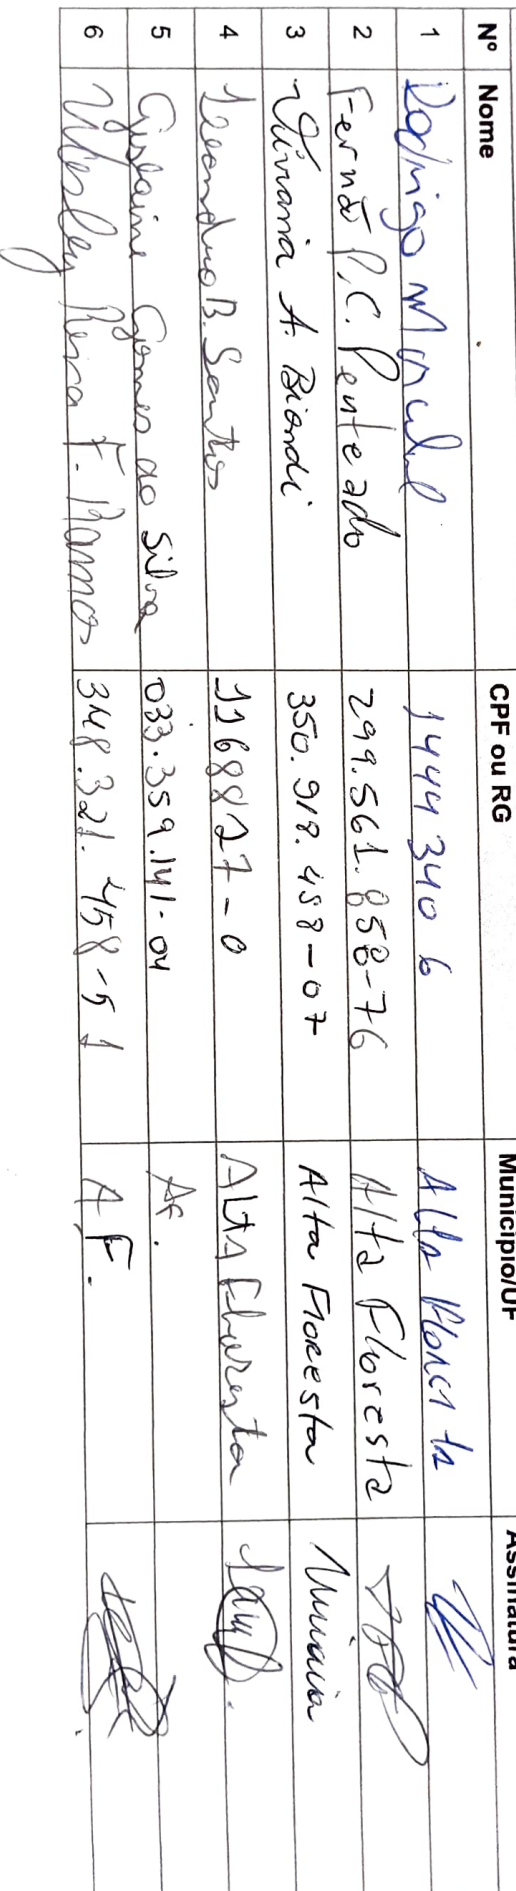 Nº Nome CPF ou RG Município/UF Assinatura
1 Rodrigo 1444 340 6 Alta Floresta
2 Fernão P. C. Penteado 299.561.858-76 Alta Floresta
3 Viviania A. Biondi 350.918.458-07 Alta Floresta
4 Leandro B. Santos 1168827-0 Alta Floresta
5 Gislaine Gomes da Silva 033.359.141-04 AF.
6 Weslley F. Ramos 348.321.458-51 A F.